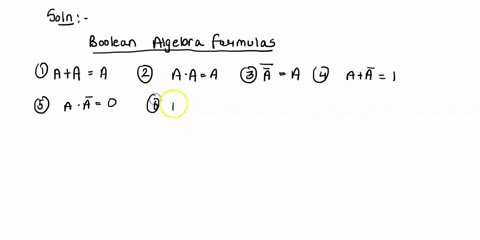 Soln :-
Boolean Algebra Formulas
① A+A = A ② A·A = A ③ A̿ = A ④ A+Ā = 1
⑤ A·Ā = 0 ⑥ 1